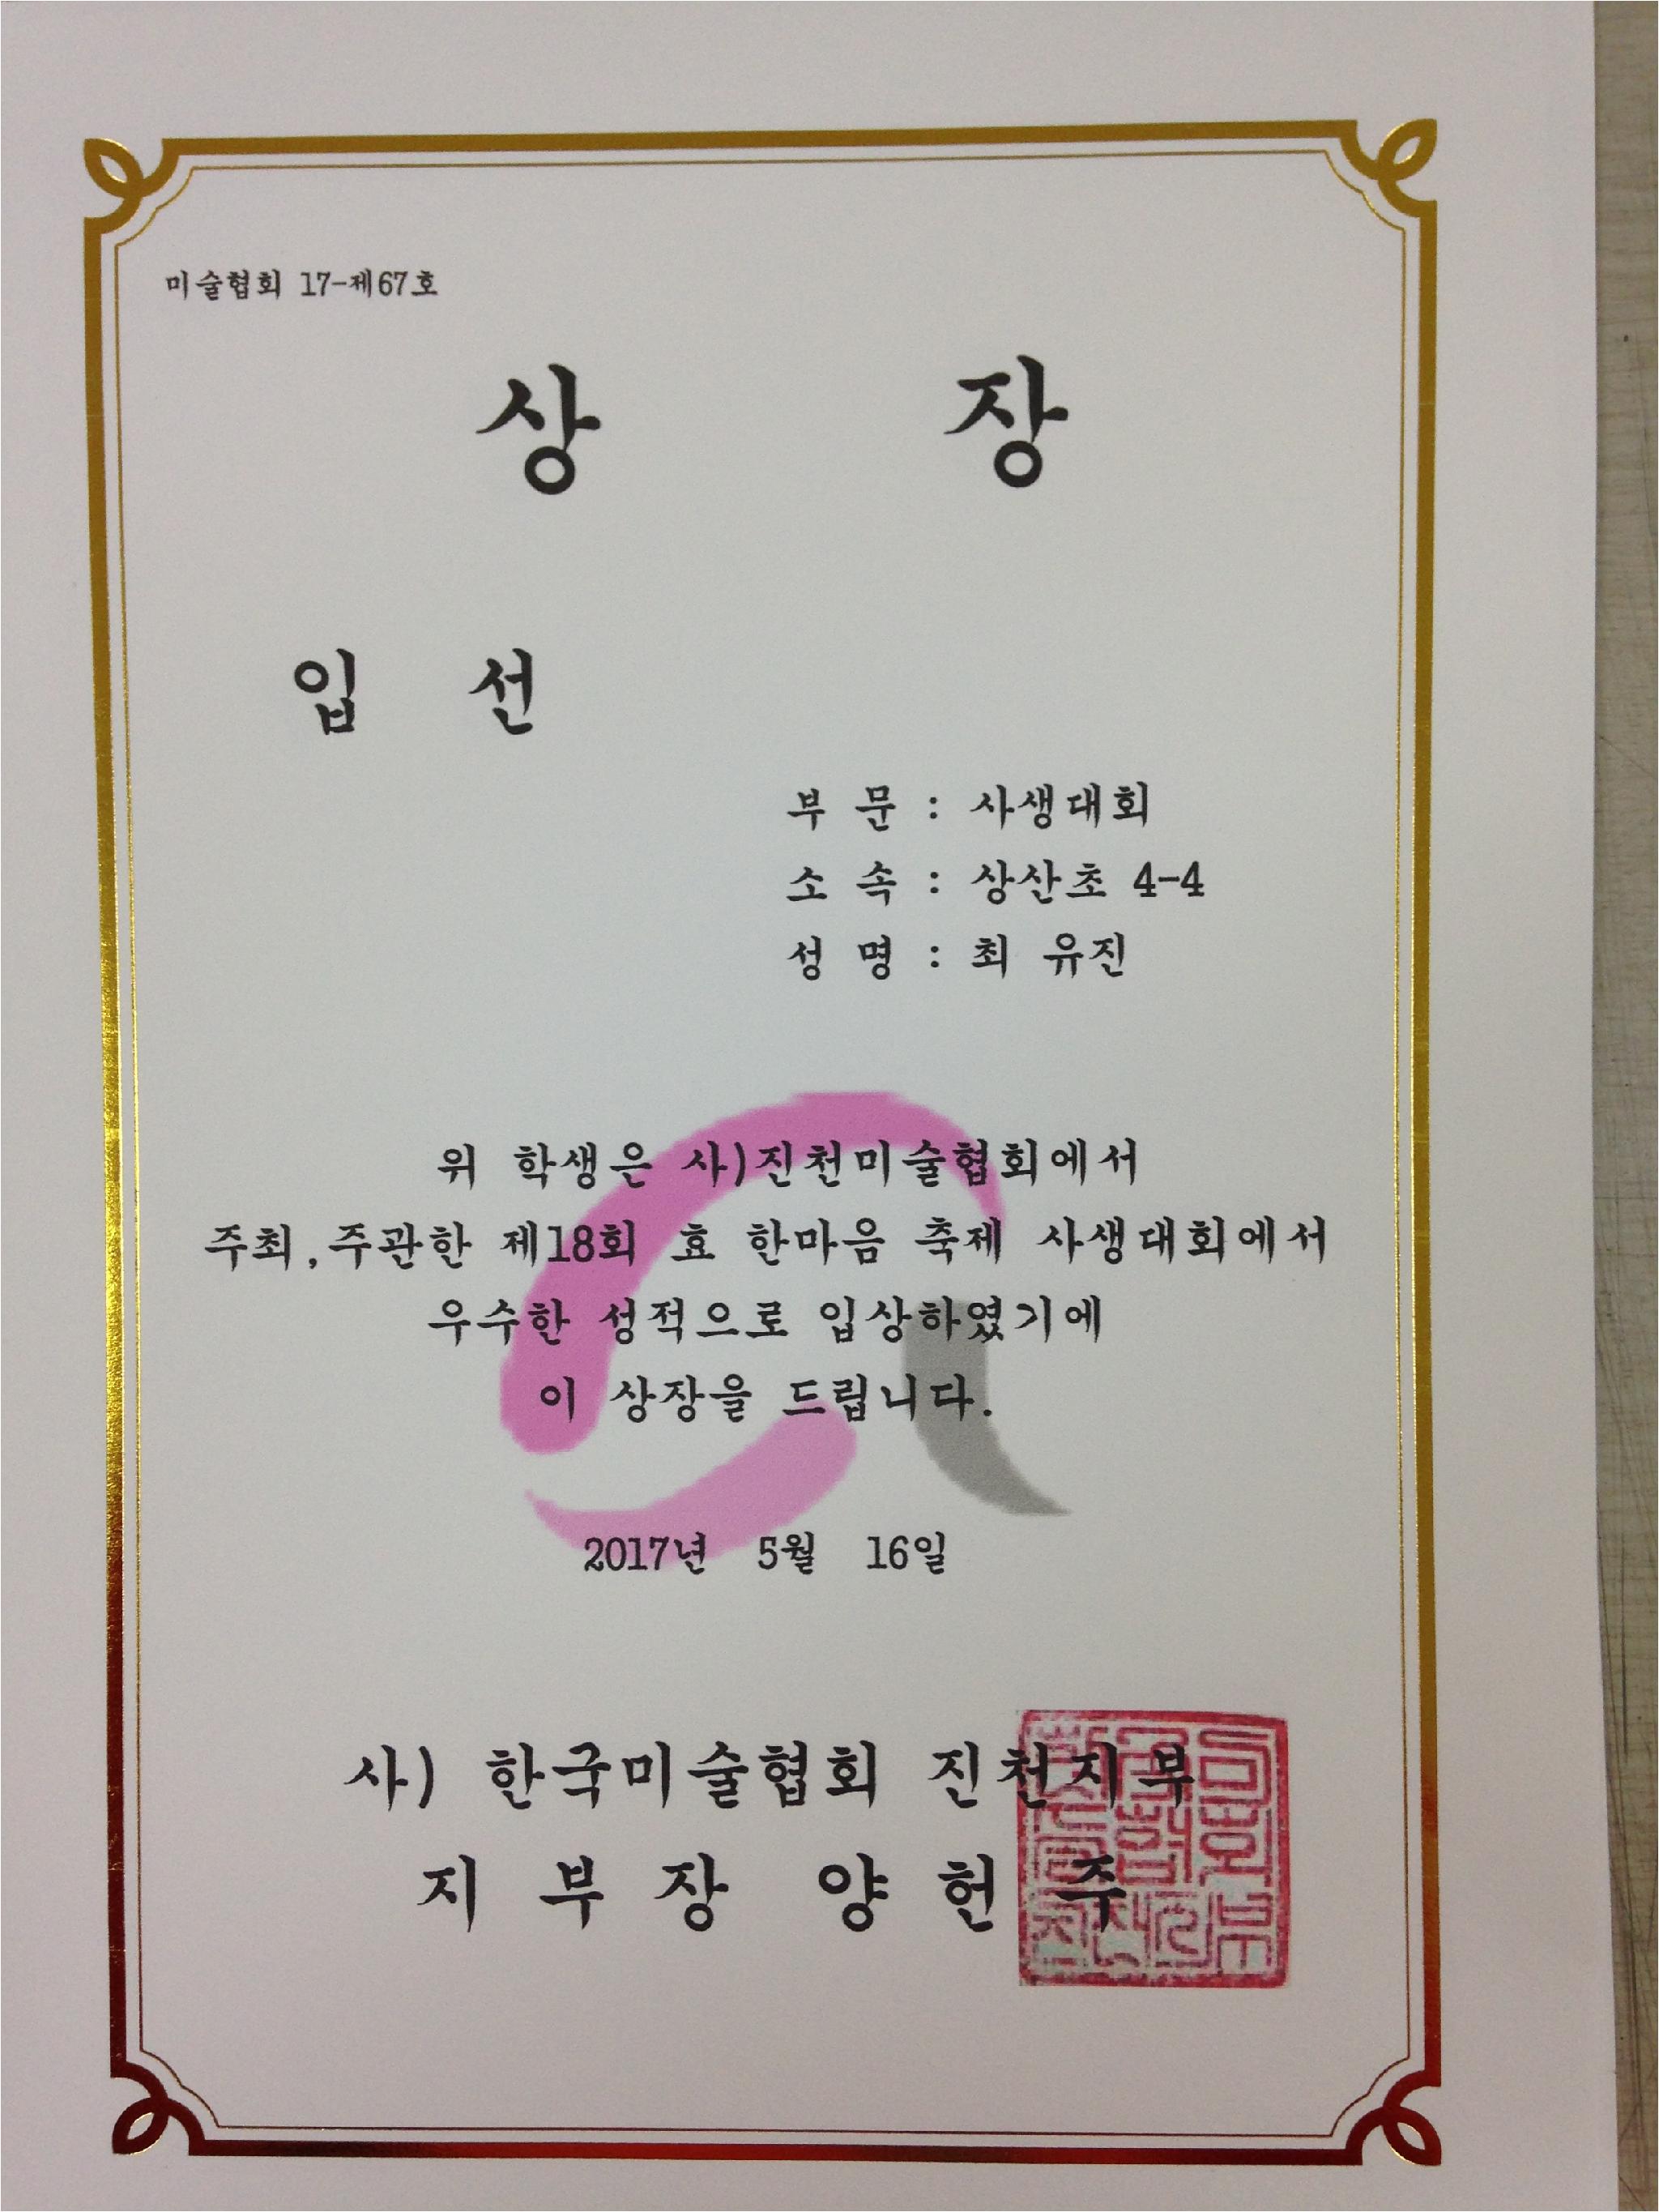 미술협회 17-제67호
상 장
입 선
부 문 : 사생대회
소 속 : 상산초 4-4
성 명 : 최 유진
위 학생은 사)진천미술협회에서
주최,주관한 제18회 효 한마음 축제 사생대회에서
우수한 성적으로 입상하였기에
이 상장을 드립니다.
2017년 5월 16일
사) 한국미술협회 진천지부
지 부 장 양 헌 주